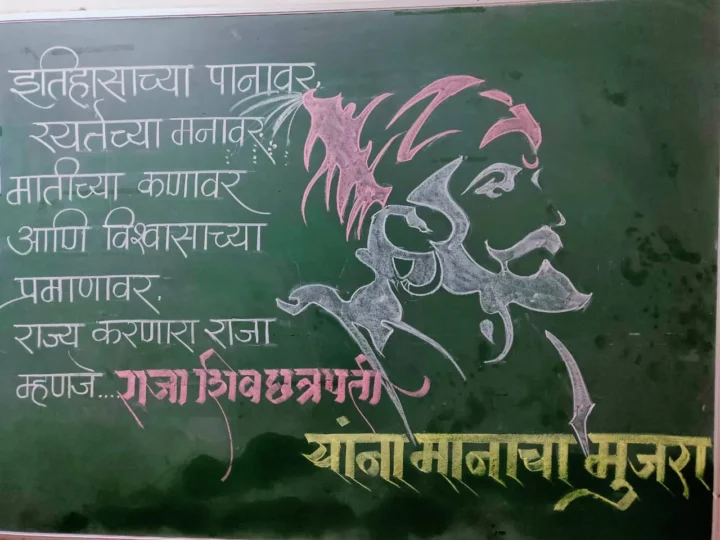 इतिहासाच्या पानावर,
रयतेच्या मनावर,
मातीच्या कणावर
आणि विश्वासाच्या
प्रमाणावर.
राज्य करणारा राजा
म्हणजे.... राजा शिवछत्रपती
यांना मानाचा मुजरा